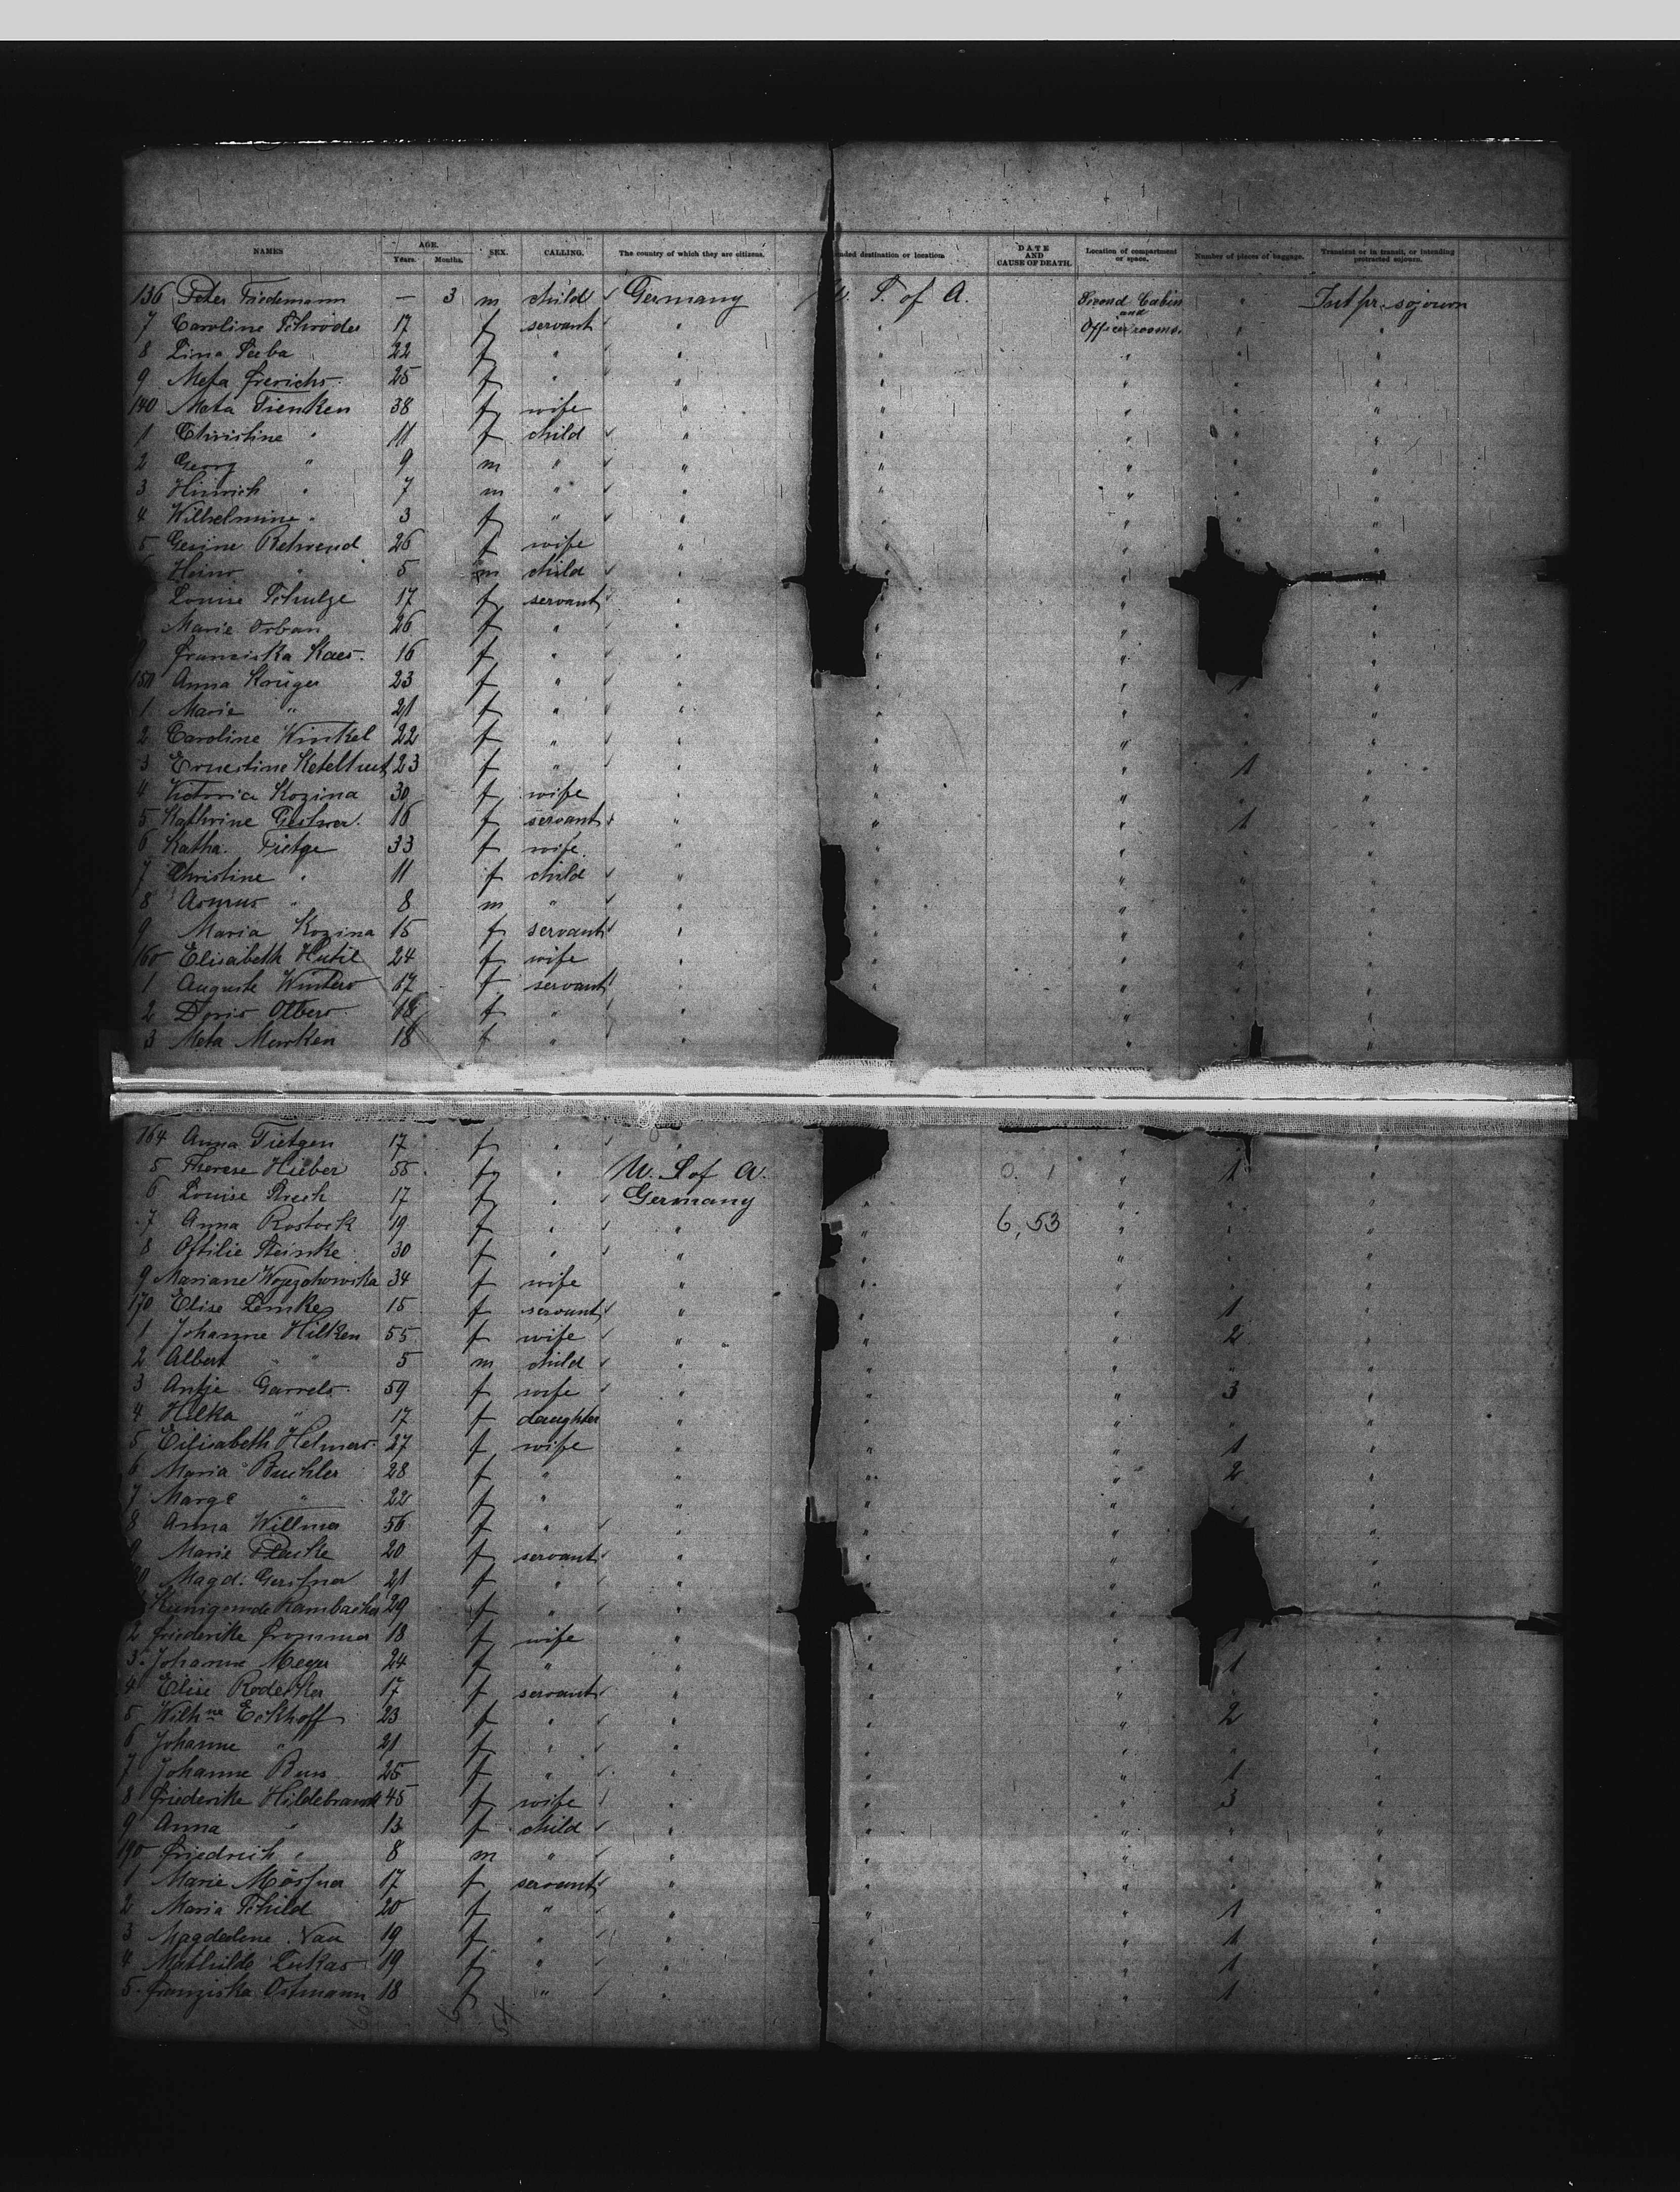 NAMES AGE. Years. Months. SEX. CALLING. The country of which they are citizens. nded destination or location DATE AND CAUSE OF DEATH. Location of compartment or space. Number of pieces of baggage. Transient or in transit, or intending protracted sojourn.
136 Peter Friedemann — 3 m child Germany S. of A. Second Cabin " Int pr. sojourn
7 Caroline Schröder 17 f servant " " and Officer rooms. " "
8 Lina 22 f " " " " " "
9 Meta Frerichs 25 f " " " " " "
140 Meta Tienken 38 f wife " " " " "
1 Christine " 11 f child " " " " "
2 Georg " 9 m " " " " "
3 Hinrich " 7 m " " " " " "
4 Wilhelmine " 3 f " " " " "
5 Gesine Behrend 26 f wife " " " "
Heinr " 5 m child " " "
Louise Schulze 17 f servant " " "
Marie Orban 26 f " " " " "
Franziska Kaes 16 f " " " " "
150 Anna Krüger 23 f " " " " 1 "
1 Marie " 21 f " " " " " "
2 Caroline Winkel 22 f " " " " " "
3 Ernestine 23 f " " " " 1 "
4 Victoria Kozina 30 f wife " " " " "
5 Kathrine 16 f servant " " " 1 "
6 Katha. Tietge 33 f wife " " " " "
7 Christine " 11 f child " " " " "
8 Asmus " 8 m " " " " " "
9 Maria Kozina 15 f servant " " " " "
160 Elisabeth 24 f wife " " " " "
1 Auguste Winters 17 f servant " " " " "
2 Doris Olbers 18 f " " " " " "
3 Meta Murken 18 f " " " " "
164 Anna Tietgen 17 f " " " "
5 Therese Hieber 55 f " U. S of A. " 0. 1 " 1 "
6 Louise 17 f " Germany " " " "
7 Anna Rostock 19 f " " " 6,53 " " "
8 Ottilie Steinke 30 f " " " " "
9 Mariane 34 f wife " " " " "
170 Elise Lemke 15 f servant " " 1 "
1 Johanne Hilken 55 f wife " " 2 "
2 Albert " 5 m child " " " " "
3 Antje Garrels 59 f wife " " " 3 "
4 Hilka " 17 f daughter " " " " "
5 Elisabeth Helmers 27 f wife " " " 1 "
6 Maria Buchler 28 f " " " " 2 "
7 Marge " 22 f " " " " "
8 Anna 56 f " " " " "
9 Marie 20 f servant " " " "
Magd. 21 f " " " " "
Kunigunde 29 f " " " " "
2 Friederike Frommer 18 f wife " " " 1 "
3 Johanne Meyer 24 f " " " " 1 "
4 Elise 17 f servant " " " " "
5 Wilhne Eckhoff 23 f " " " " 2 "
6 Johanne " 21 f " " " " " "
7 Johanne 25 f " " " " 1 "
8 Friederike Hildebrandt 45 f wife " " " 3 "
9 Anna " 13 f child " " " " "
190 Friedrich " 8 m " " " " " "
1 Marie 17 f servant " " " " "
2 Maria Schild 20 f " " " " 1 "
3 Magdalene 19 f " " " " 1 "
4 Mathilde Lukas 19 f " " " " 1 "
5 Franziska Ostmann 18 f " " " " 1 "
60 6 54